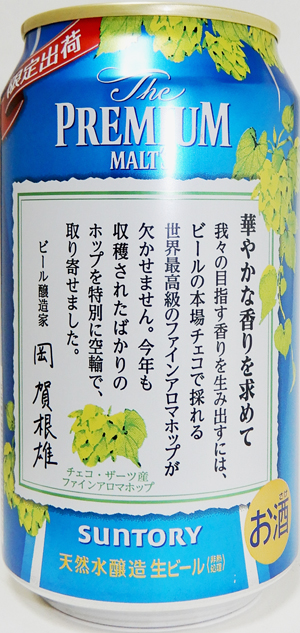 限定出荷
The
PREMIUM
MALT'S
華やかな香りを求めて
我々の目指す香りを生み出すには、
ビールの本場チェコで採れる
世界最高級のファインアロマホップが
欠かせません。今年も
収穫されたばかりの
ホップを特別に空輸で、
取り寄せました。
ビール醸造家 岡賀根雄
チェコ・ザーツ産
ファインアロマホップ
お酒
SUNTORY
天然水醸造 生ビール(非熱処理)